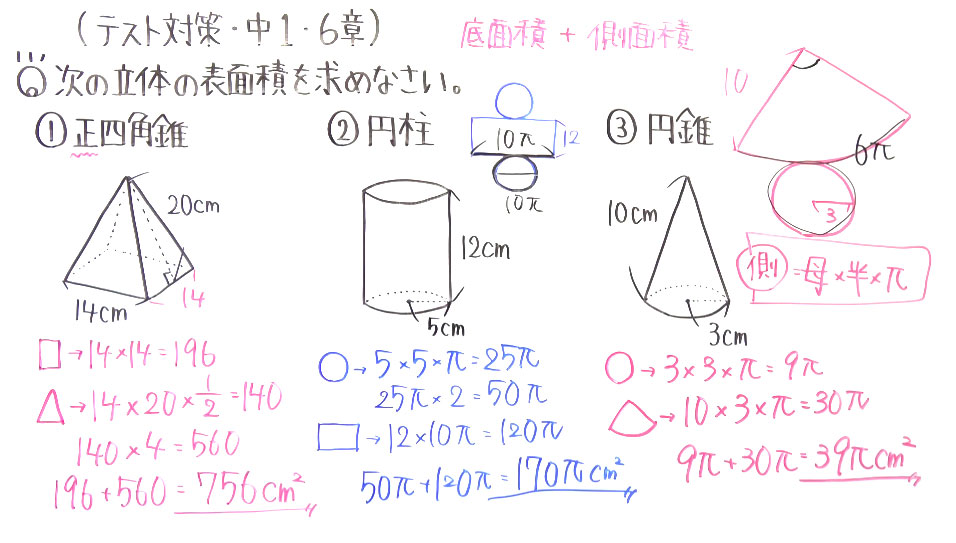 (テスト対策・中1・6章)
底面積 + 側面積
次の立体の表面積を求めなさい。
① 正四角錐
20cm
14cm
14
□→14×14=196
△→14×20×1/2=140
140×4=560
196+560=756cm²
② 円柱
10π
12
10π
12cm
5cm
○→5×5×π=25π
25π×2=50π
□→12×10π=120π
50π+120π=170πcm²
③ 円錐
10
6π
3
10cm
3cm
側=母×半×π
○→3×3×π=9π
→10×3×π=30π
9π+30π=39πcm²